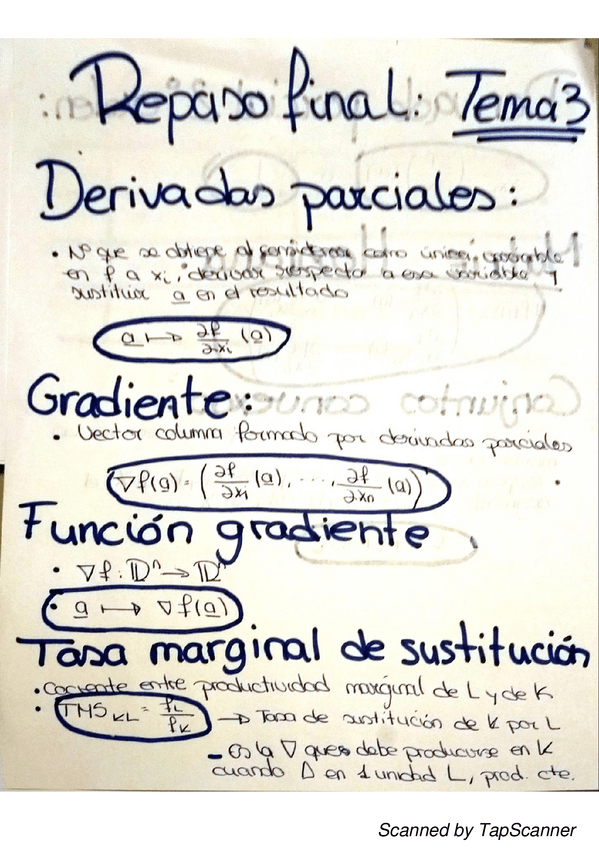 Repaso final: Tema 3
Derivadas parciales:
• Nº que se obtiene al considerar como única variable
en f a xi, derivar respecto a esa variable y
sustituir a en el resultado
a ↦ ∂f/∂xi (a)
Gradiente:
• Vector columna formado por derivadas parciales
∇f(a) = (∂f/∂xi (a), ..., ∂f/∂xn (a))
Función gradiente
• ∇f: Dⁿ → Dⁿ
• a ↦ ∇f(a)
Tasa marginal de sustitución
• Cociente entre productividad marginal de L y de K
• TMS KL = fL/fK → Tasa de sustitución de K por L
- Es la ∇ que se debe producirse en K
cuando Δ en 1 unidad L, prod. cte.
Scanned by TapScanner